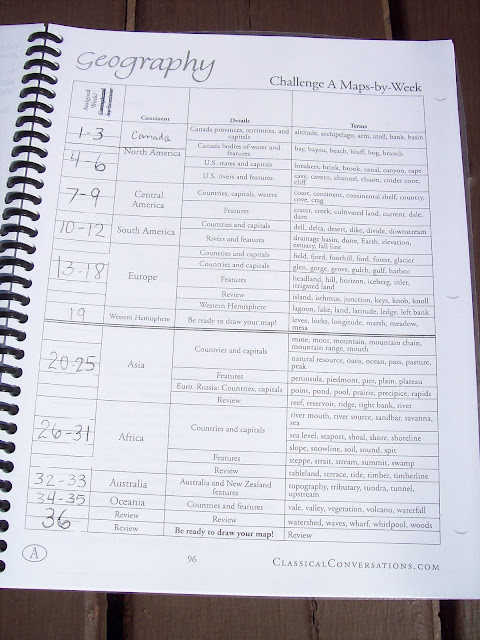 Geography
Challenge A Maps-by-Week
Assigned Week/
Continent Details Terms
1-3 Canada Canada provinces, territories, and capitals altitude, archipelago, arm, atoll, bank, basin
North America Canada bodies of water and features bay, bayou, beach, bluff, bog, branch
4-6 U.S. states and capitals breakers, brink, brook, canal, canyon, cape
U.S. rivers and features cave, cavern, channel, chasm, cinder cone, cliff
7-9 Central America Countries, capitals, waters coast, continent, continental shelf, country, cove, crag
Features crater, creek, cultivated land, current, dale, dam
10-12 South America Countries and capitals dell, delta, desert, dike, divide, downstream
Rivers and features drainage basin, dune, Earth, elevation, estuary, fall line
13-18 Europe Countries and capitals field, fjord, foothill, ford, forest, glacier
Countries and capitals glen, gorge, grove, gulch, gulf, harbor
Features headland, hill, horizon, iceberg, inlet, irrigated land
Review island, isthmus, junction, keys, knob, knoll
Western Hemisphere lagoon, lake, land, latitude, ledge, left bank
19 Western Hemisphere Be ready to draw your map! levee, locks, longitude, marsh, meadow, mesa
20-25 Asia Countries and capitals mine, moor, mountain, mountain chain, mountain range, mouth
natural resource, oasis, ocean, pass, pasture, peak
Features peninsula, piedmont, pier, plain, plateau
Euro. Russia: Countries, capitals point, pond, pool, prairie, precipice, rapids
Review reef, reservoir, ridge, right bank, river
26-31 Africa Countries and capitals river mouth, river source, sandbar, savanna, sea
sea level, seaport, shoal, shore, shoreline
slope, snowline, soil, sound, spit
Features steppe, strait, stream, summit, swamp
Review tableland, terrace, tide, timber, timberline
32-33 Australia Australia and New Zealand features topography, tributary, tundra, tunnel, upstream
34-35 Oceania Countries and features vale, valley, vegetation, volcano, waterfall
36 Review Review watershed, waves, wharf, whirlpool, woods
Review Be ready to draw your map! Review
A
96
ClassicalConversations.com